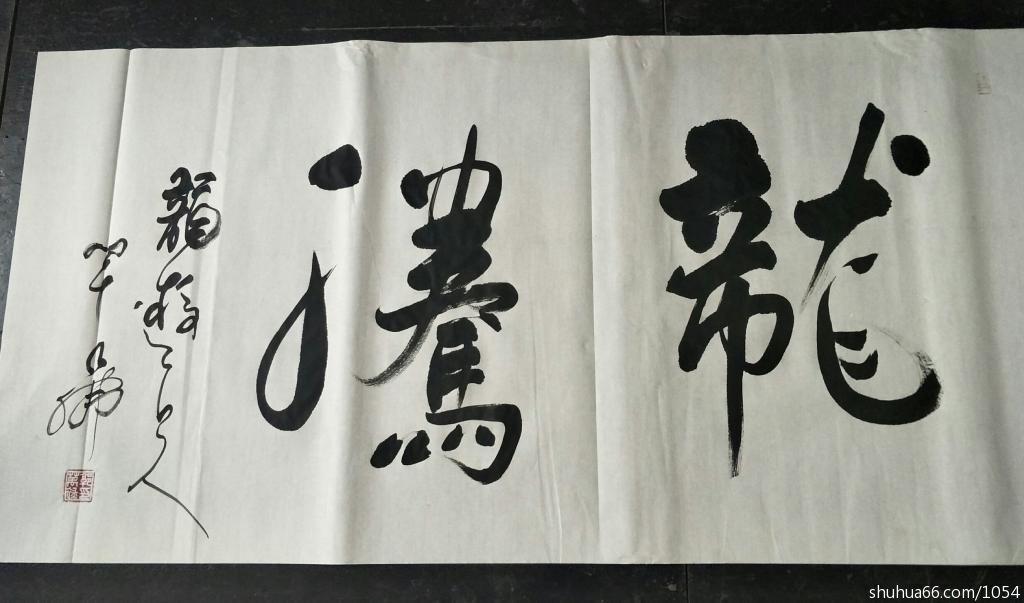 龍騰
龍遊上人
shuhua66.com/1054